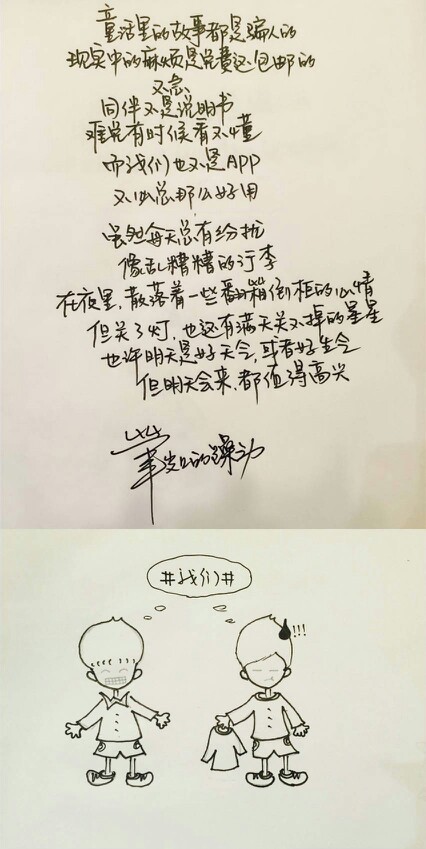 童话里的故事都是骗人的
现实中的麻烦是免费还包邮的
不急
同伴不是说明书
难免有时候看不懂
而我们也不是APP
不必总那么好用
虽然每天总有纷扰
像乱糟糟的行李
在夜里,散落着一些翻箱倒柜的心情
但关了灯,也还有满天关不掉的星星
也许明天是好天今,或者好生今
但明天会来,都值得高兴
岁的躁动
#我们#
!!!